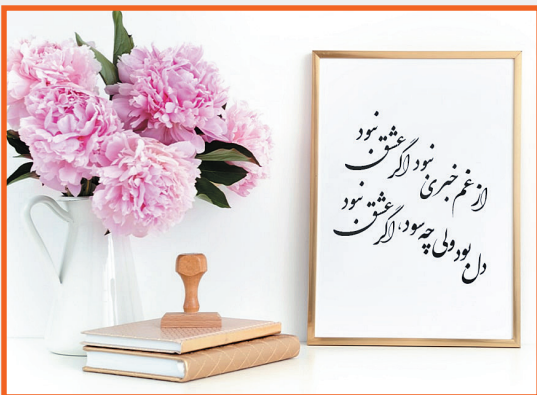 از غم خبری نبود اگر عشق نبود
دل بود ولی چه سود، اگر عشق نبود